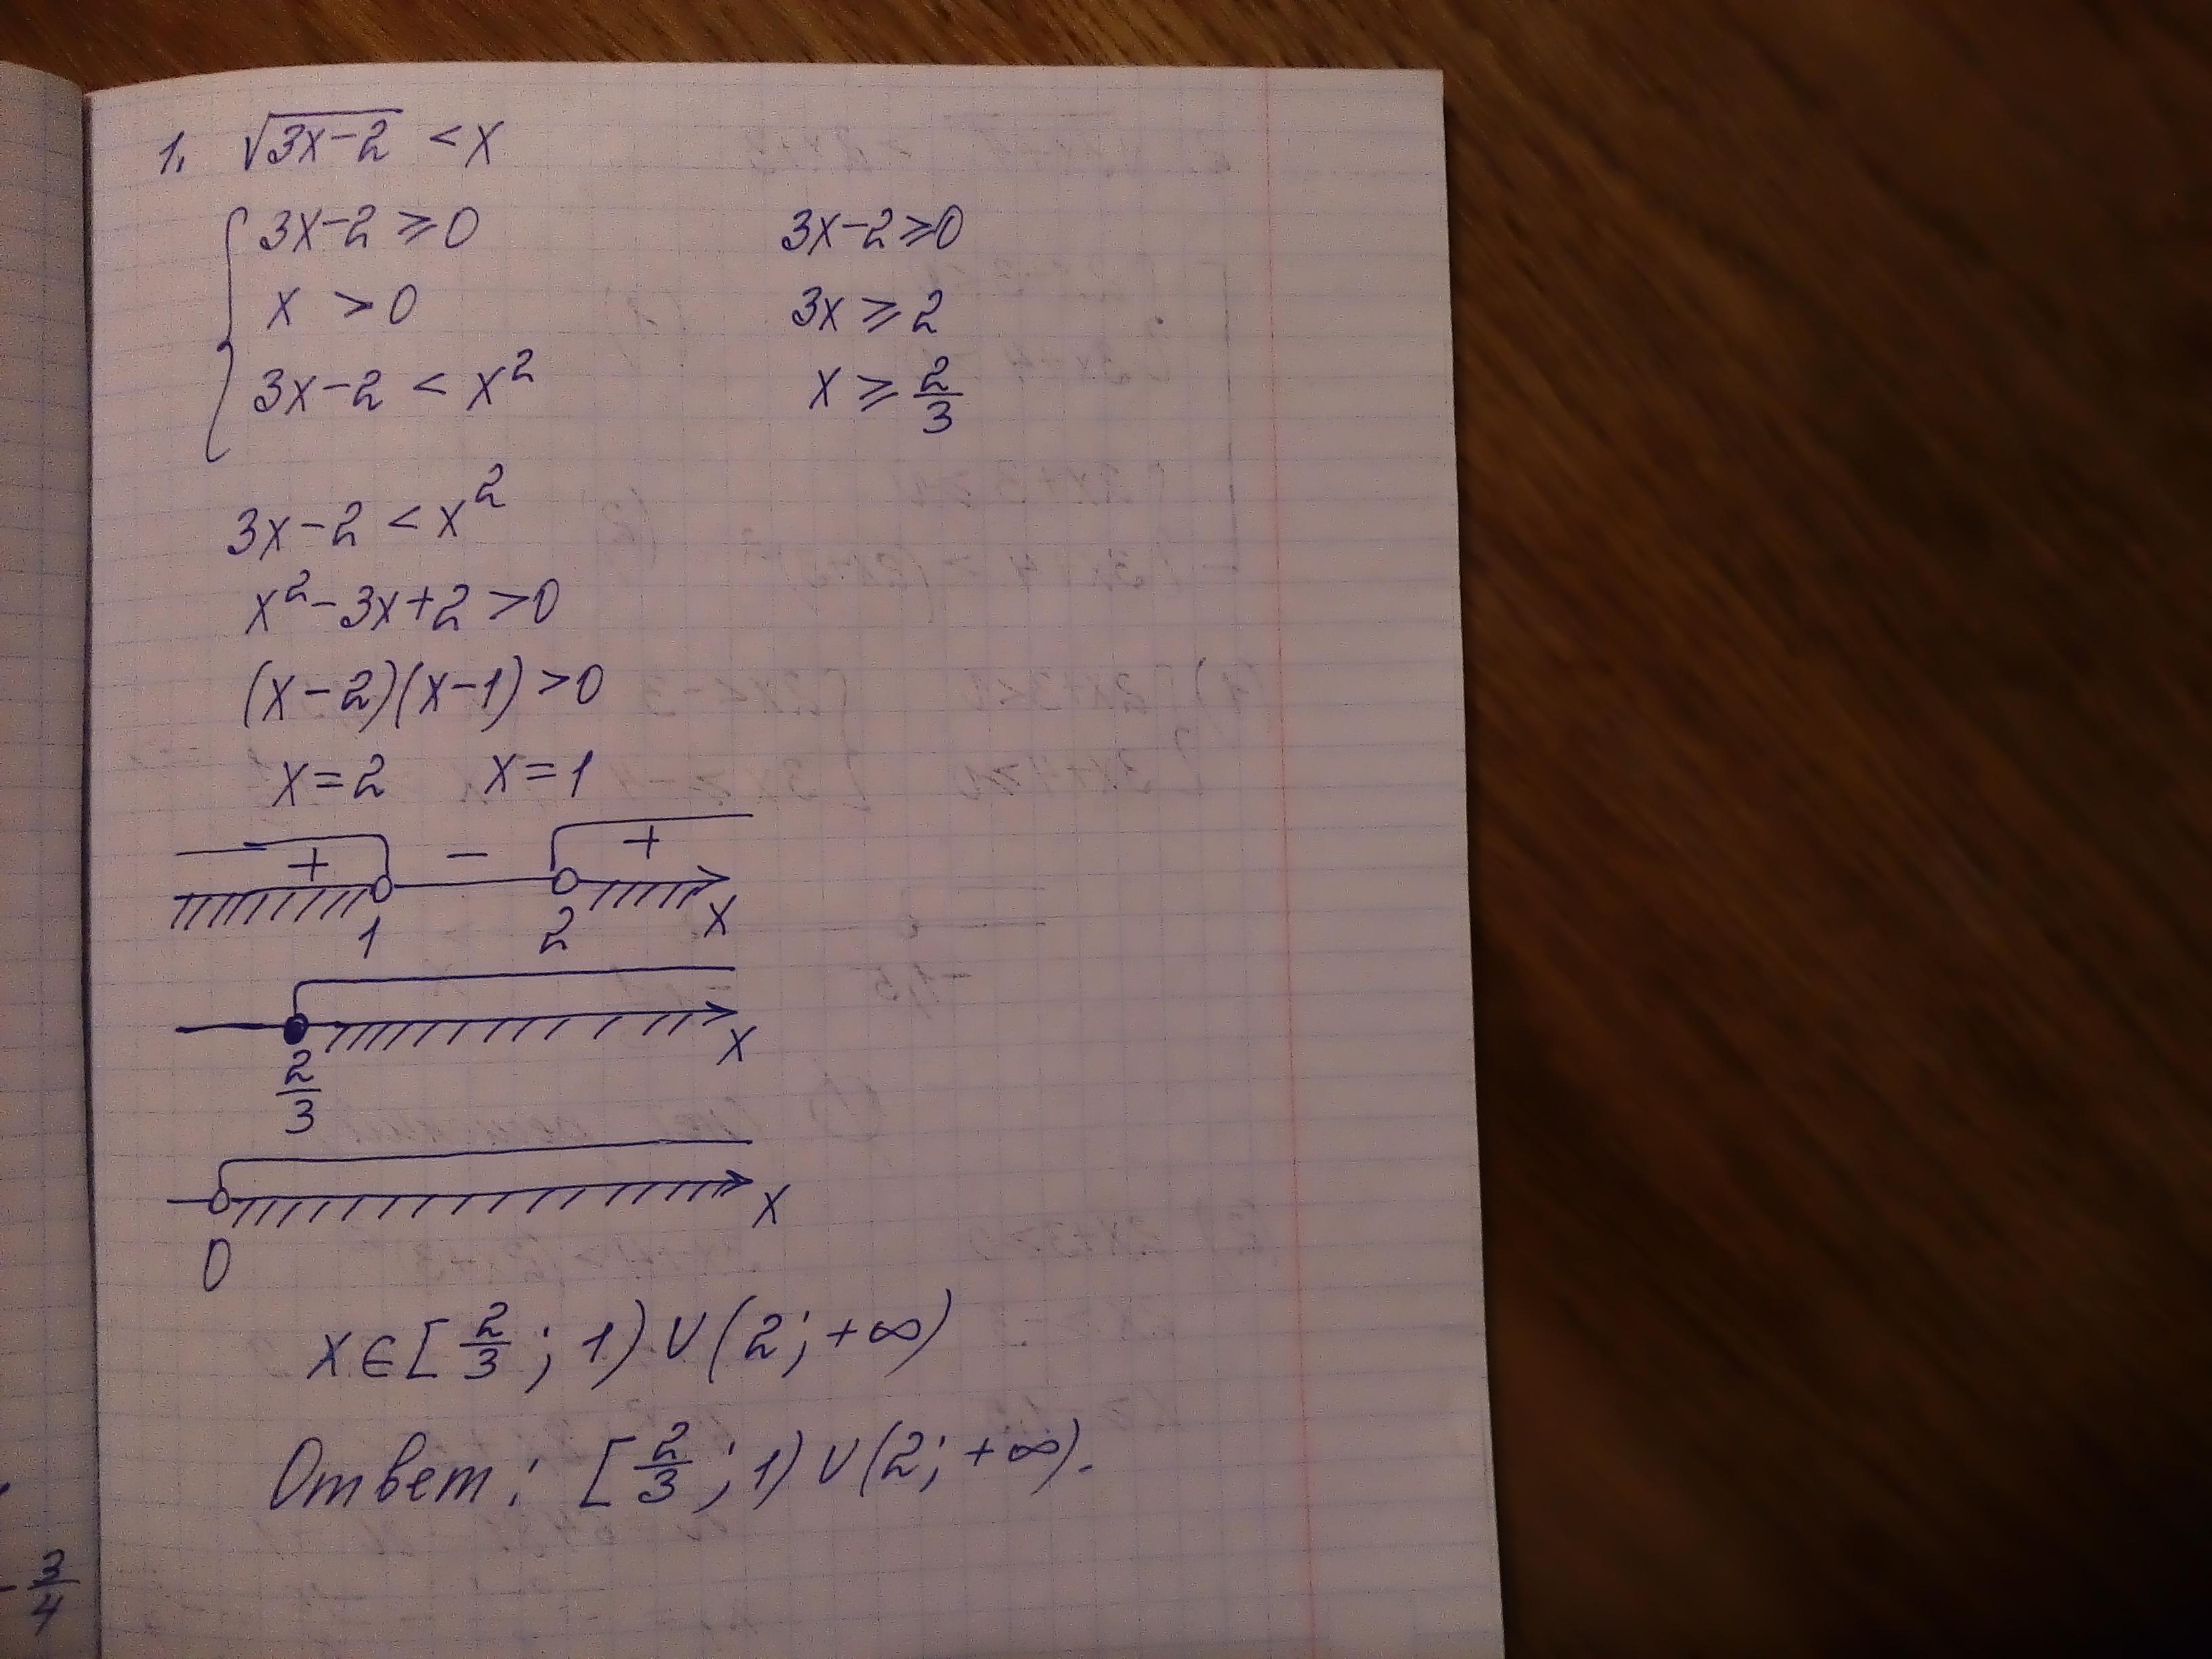 1. √3x-2 < x
3x-2 ≥ 0 3x-2 ≥ 0
x > 0 3x ≥ 2
3x-2 < x² x ≥ 2/3
3x-2 < x²
x²-3x+2 > 0
(x-2)(x-1) > 0
x=2 x=1
+ - +
1 2 x
x
2/3
x
0
x ∈ [2/3; 1) ∪ (2; +∞)
Ответ: [2/3; 1) ∪ (2; +∞).
- 3/4